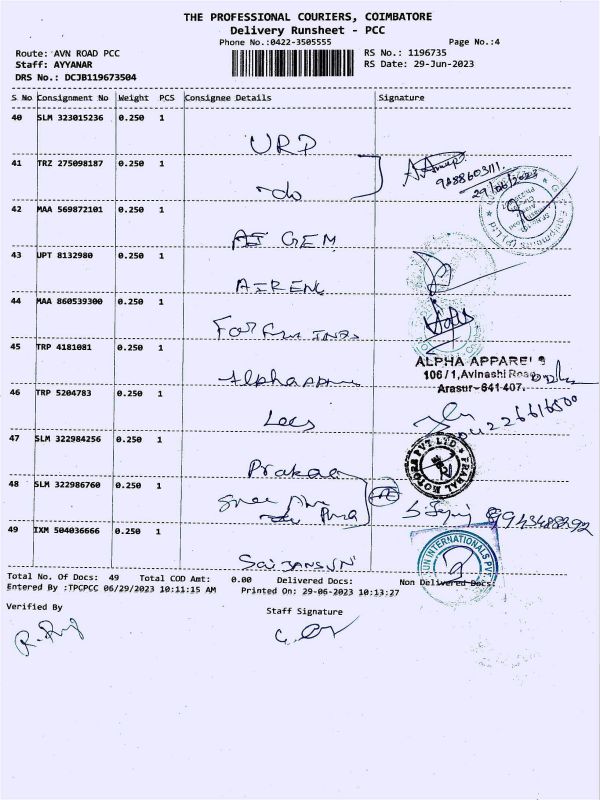 THE PROFESSIONAL COURIERS, COIMBATORE
Delivery Runsheet - PCC
Phone No.:0422-3505555 Page No.:4
Route: AVN ROAD PCC RS No.: 1196735
Staff: AYYANAR RS Date: 29-Jun-2023
DRS No.: DCJB119673504
S No Consignment No Weight PCS Consignee Details Signature
40 SLM 323015236 0.250 1
URP
41 TRZ 275098187 0.250 1
do
9488603111
29/06/2023
42 MAA 569872101 0.250 1
GEM
43 UPT 8132980 0.250 1
AIREN
44 MAA 860539300 0.250 1
45 TRP 4181081 0.250 1
ALPHA APPARELS
106/1, Avinashi Road
Arasur - 641 407.
46 TRP 5204783 0.250 1
Lees
04226616500
47 SLM 322984256 0.250 1
Prakaa
48 SLM 322986760 0.250 1
49 IXM 504036666 0.250 1
UN INTERNATIONALS PVT
Total No. Of Docs: 49 Total COD Amt: 0.00 Delivered Docs: Non Delivered Docs:
Entered By :TPCPCC 06/29/2023 10:11:15 AM Printed On: 29-06-2023 10:13:27
Verified By Staff Signature